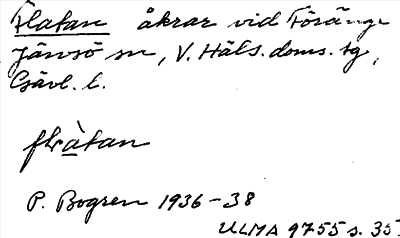 Flatan åkrar vid Föränge
Järvsö sn, V. Häls. doms. sg,
Gävl. l.
flàtan
P. Bogren 1936-38
ULMA 9755 s. 35.